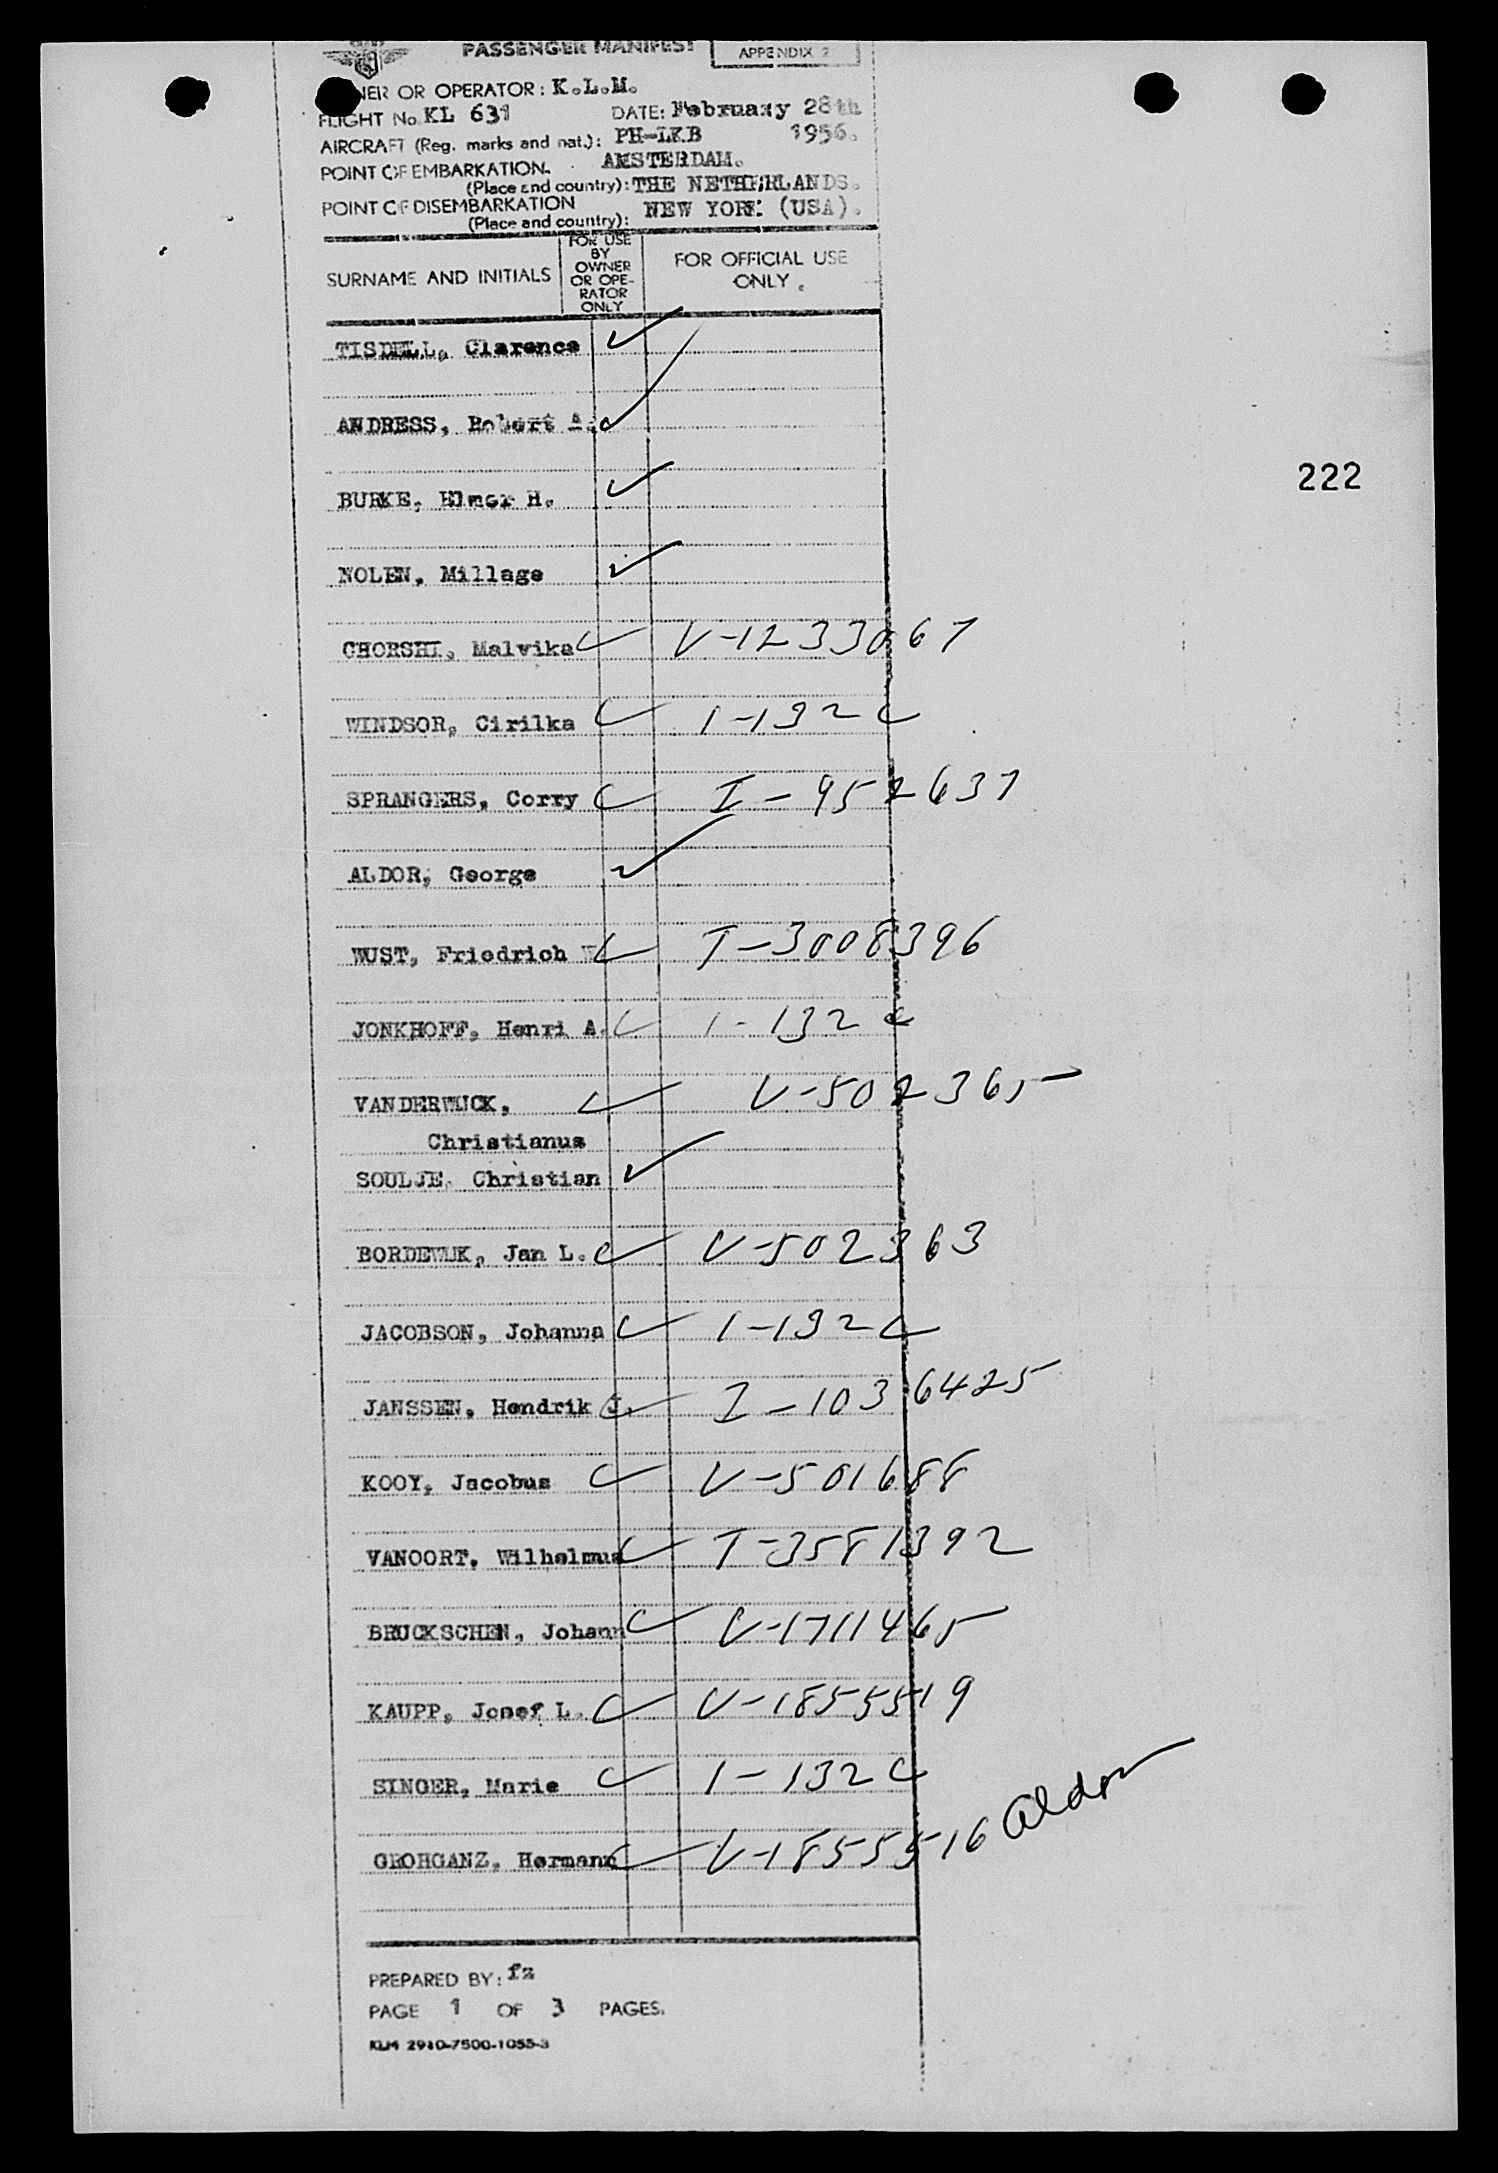 PASSENGER MANIFEST
APPENDIX 2
OWNER OR OPERATOR: K.L.M.
FLIGHT No. KL 631 DATE: February 28th
AIRCRAFT (Reg. marks and nat.): PH-LKB 1956.
POINT OF EMBARKATION. AMSTERDAM.
(Place and country): THE NETHERLANDS.
POINT OF DISEMBARKATION
(Place and country): NEW YORK (USA).
SURNAME AND INITIALS
FOR USE
BY
OWNER
OR OPE-
RATOR
ONLY
FOR OFFICIAL USE
ONLY.
TISDELL, Clarence ✓
ANDRESS, Robert A. ✓
BURKE, Elmer H. ✓
NOLEN, Millage ✓
222
CHORSHI, Malvika ✓ V-1233067
WINDSOR, Cirilka ✓ 1-132 C
SPRANGERS, Corry ✓ I-952637
ALDOR, George ✓
WUST, Friedrich W ✓ T-3008396
JONKHOFF, Henri A. ✓ 1-132 C
VANDERWIJCK, ✓ V-502365
Christianus
SOULJE, Christian ✓
BORDEWIJK, Jan L. ✓ V-502363
JACOBSON, Johanna ✓ 1-132 C
JANSSEN, Hendrik J. ✓ I-1036425
KOOY, Jacobus ✓ V-501688
VANOORT, Wilhelmus ✓ T-3581392
BRUCKSCHEN, Johann ✓ V-1711465
KAUPP, Josef L. ✓ V-1855519
SINGER, Marie ✓ 1-132 C
GROHGANZ, Hermann ✓ V-1855516 Aldor
PREPARED BY: fz
PAGE 1 OF 3 PAGES.
KLM 2910-7500-1055-3